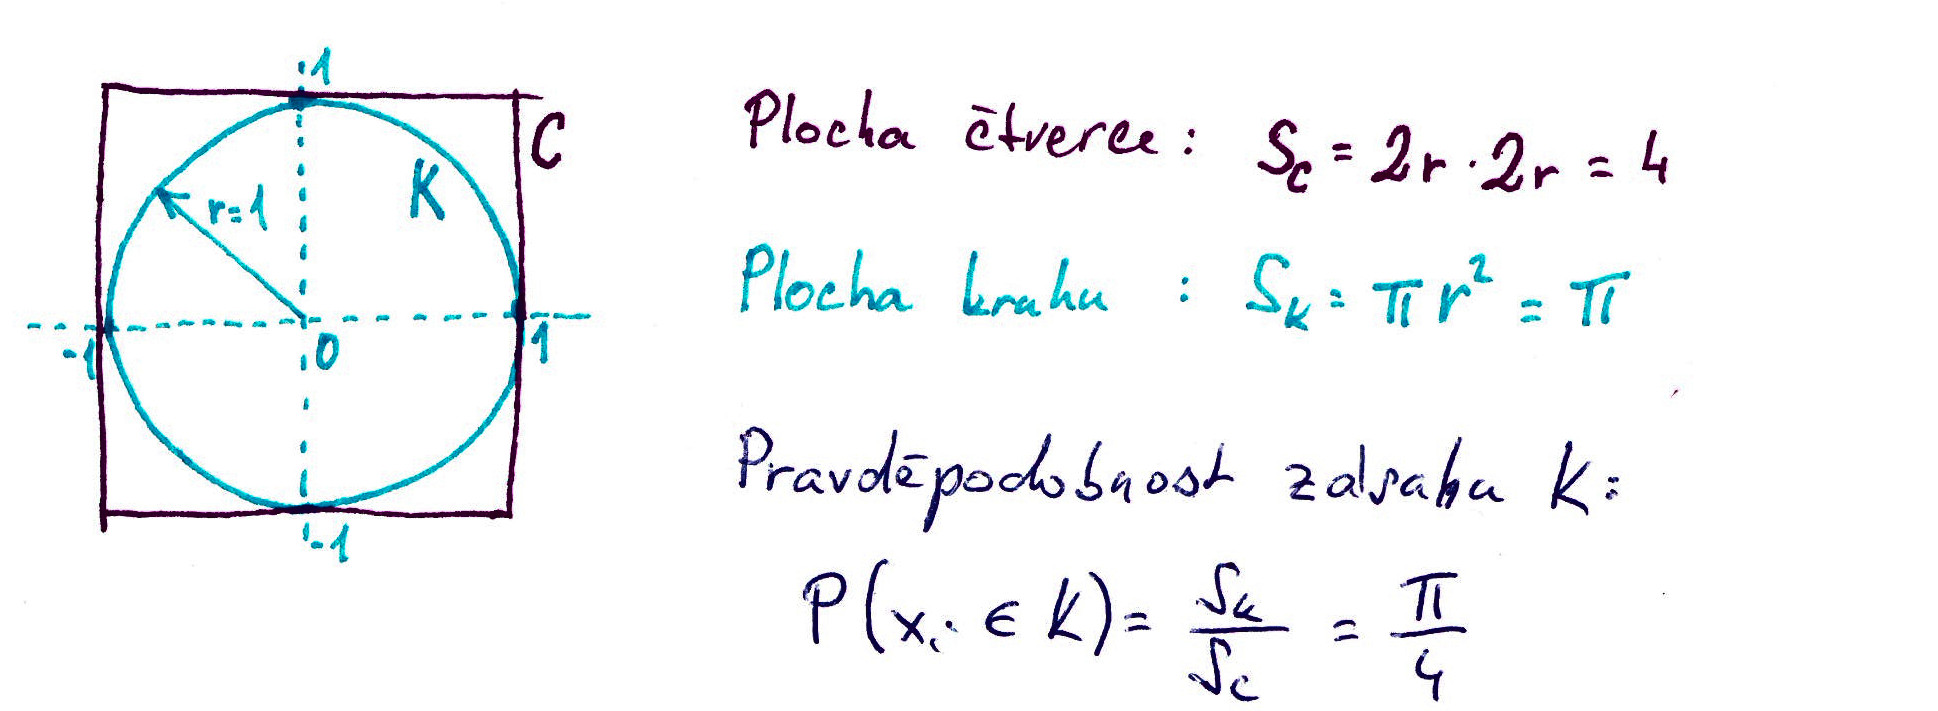 1
C
K
r=1
-1
0
1
-1
Plocha čtverce : Sc = 2r · 2r = 4
Plocha kruhu : Sk = π r² = π
Pravděpodobnost zásahu K:
P(xi ∈ K) = Sk / Sc = π / 4